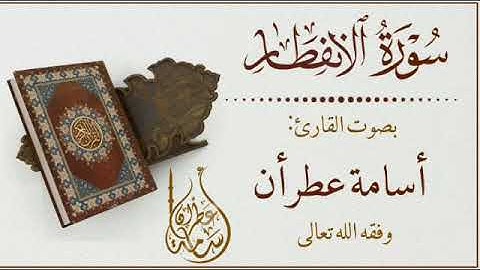 سُورَةُ ٱلِانفِطَارِ
بصوت القارئ:
أسامة عطرأن
وفقه الله تعالى
أسامة
عطران
القرآن الكريم